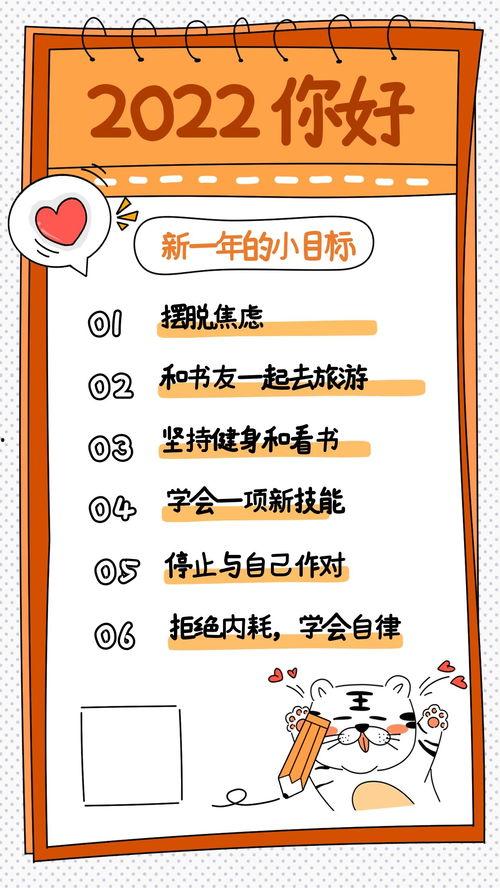 2022 你好
新一年的小目标
01 摆脱焦虑
02 和书友一起去旅游
03 坚持健身和看书
04 学会一项新技能
05 停止与自己作对
06 拒绝内耗，学会自律
王